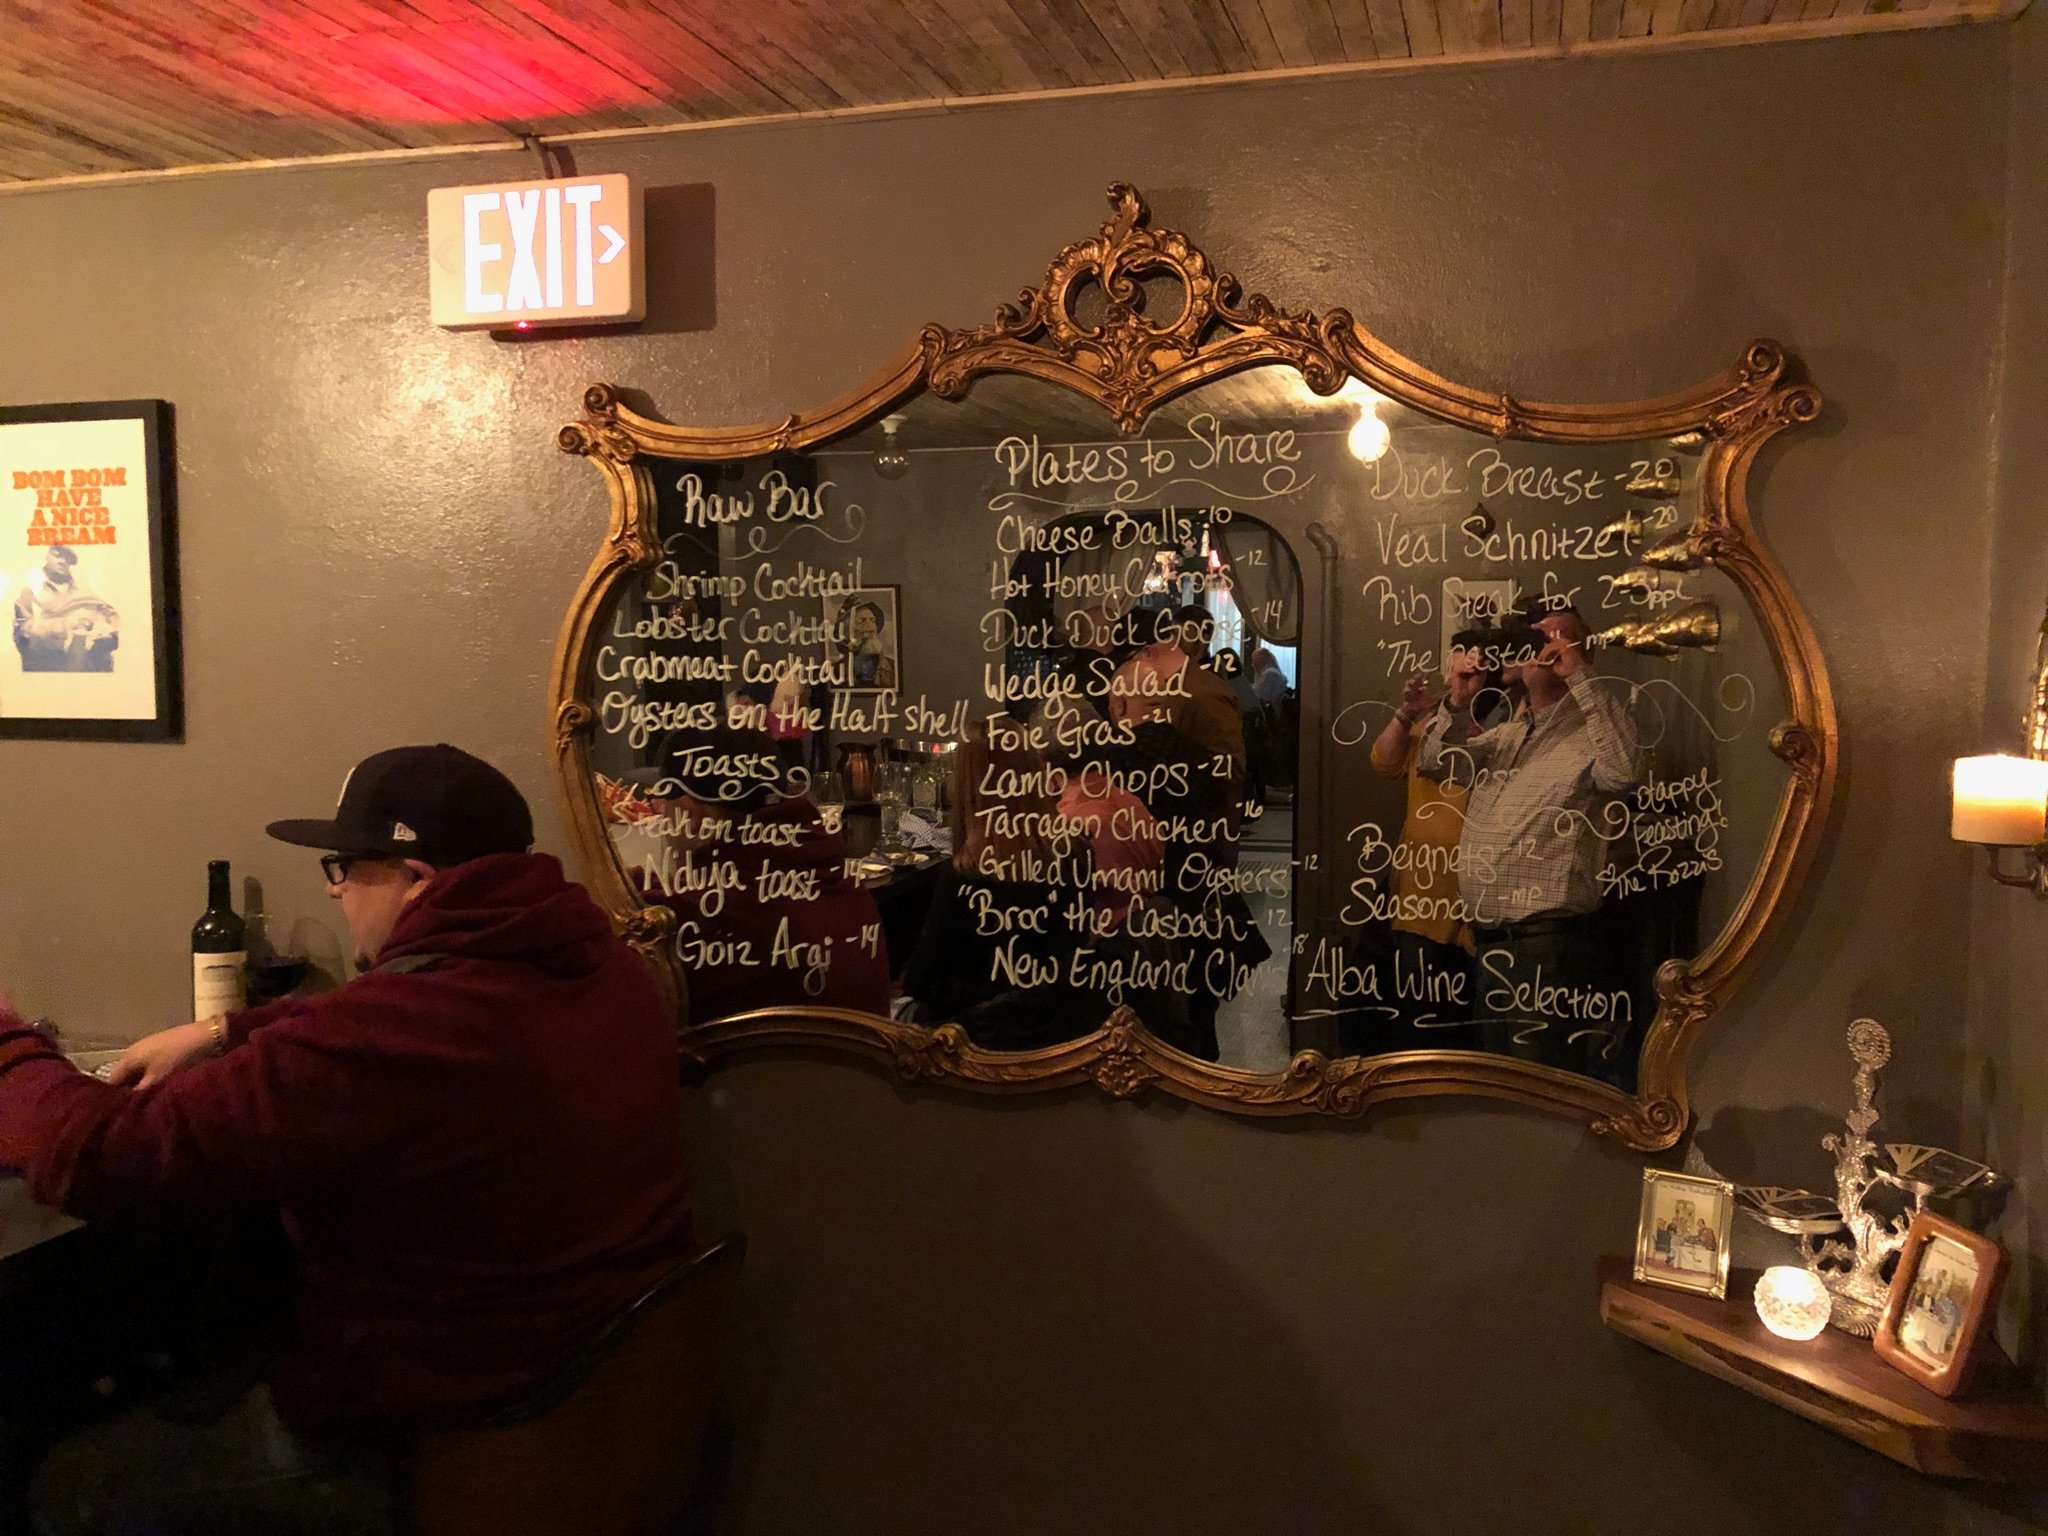 EXIT
BOM BOM
HAVE
A NICE
BREAM
Raw Bar
Shrimp Cocktail
Lobster Cocktail
Crabmeat Cocktail
Oysters on the Half shell
Toasts
Steak on toast -18
N'duja toast -14
Goiz Argi -14
Plates to Share
Cheese Balls -10
Hot Honey Carrots -12
Duck Duck Goose -14
Wedge Salad -12
Foie Gras -21
Lamb Chops -21
Tarragon Chicken -16
Grilled Umami Oysters -12
"Broc" the Casbah -12
New England Clams -18
Duck Breast -20
Veal Schnitzel -20
Rib Steak for 2-3ppl
"The pasta" -mp
Beignets -12
Seasonal -mp
Happy
Feasting!
The Rozzi's
Alba Wine Selection